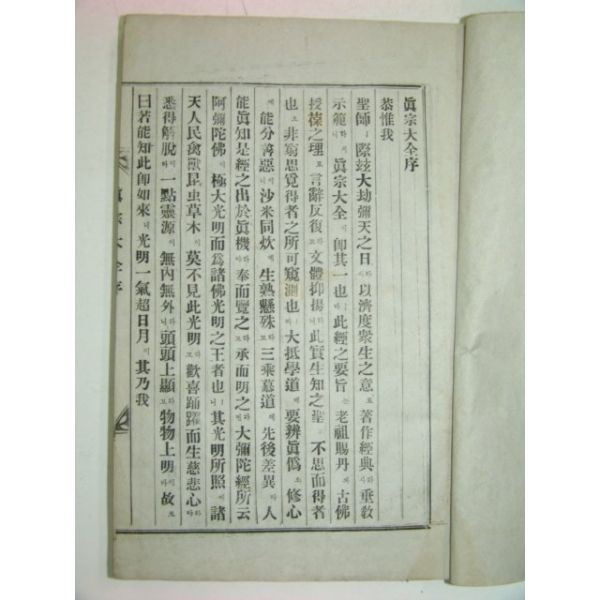 眞宗大全序
恭惟我
聖師ㅣ際玆大劫彌天之日하사以濟度衆生之意로著作經典하사垂敎
示範하시니眞宗大全이卽其一也ㅣ라此經之要旨는老祖賜丹과古佛
授葆之理로言辭反復하고文體抑揚하니此實生知之聖이不思而得者
也오非窮思覓得者之所可窺測也ㅣ라大抵學道에要辨眞僞오修心
에能分善惡이니沙米同炊에生熟懸殊하고三乘慕道에先後差異라人
能眞知是經之出於眞機하야奉而覽之하고承而明之면大彌陀經所云
阿彌陀佛이極大光明而爲諸佛光明之王者也ㅣ니其光明所照에諸
天人民禽獸昆虫草木이莫不見此光明하고歡喜踊躍而生慈悲心하야
悉得解脫하나니一點靈源이無內無外하니頭頭上顯이오物物上明이라故로
曰若能知此卽如來니光明一氣超日月이其乃我
眞宗大全序